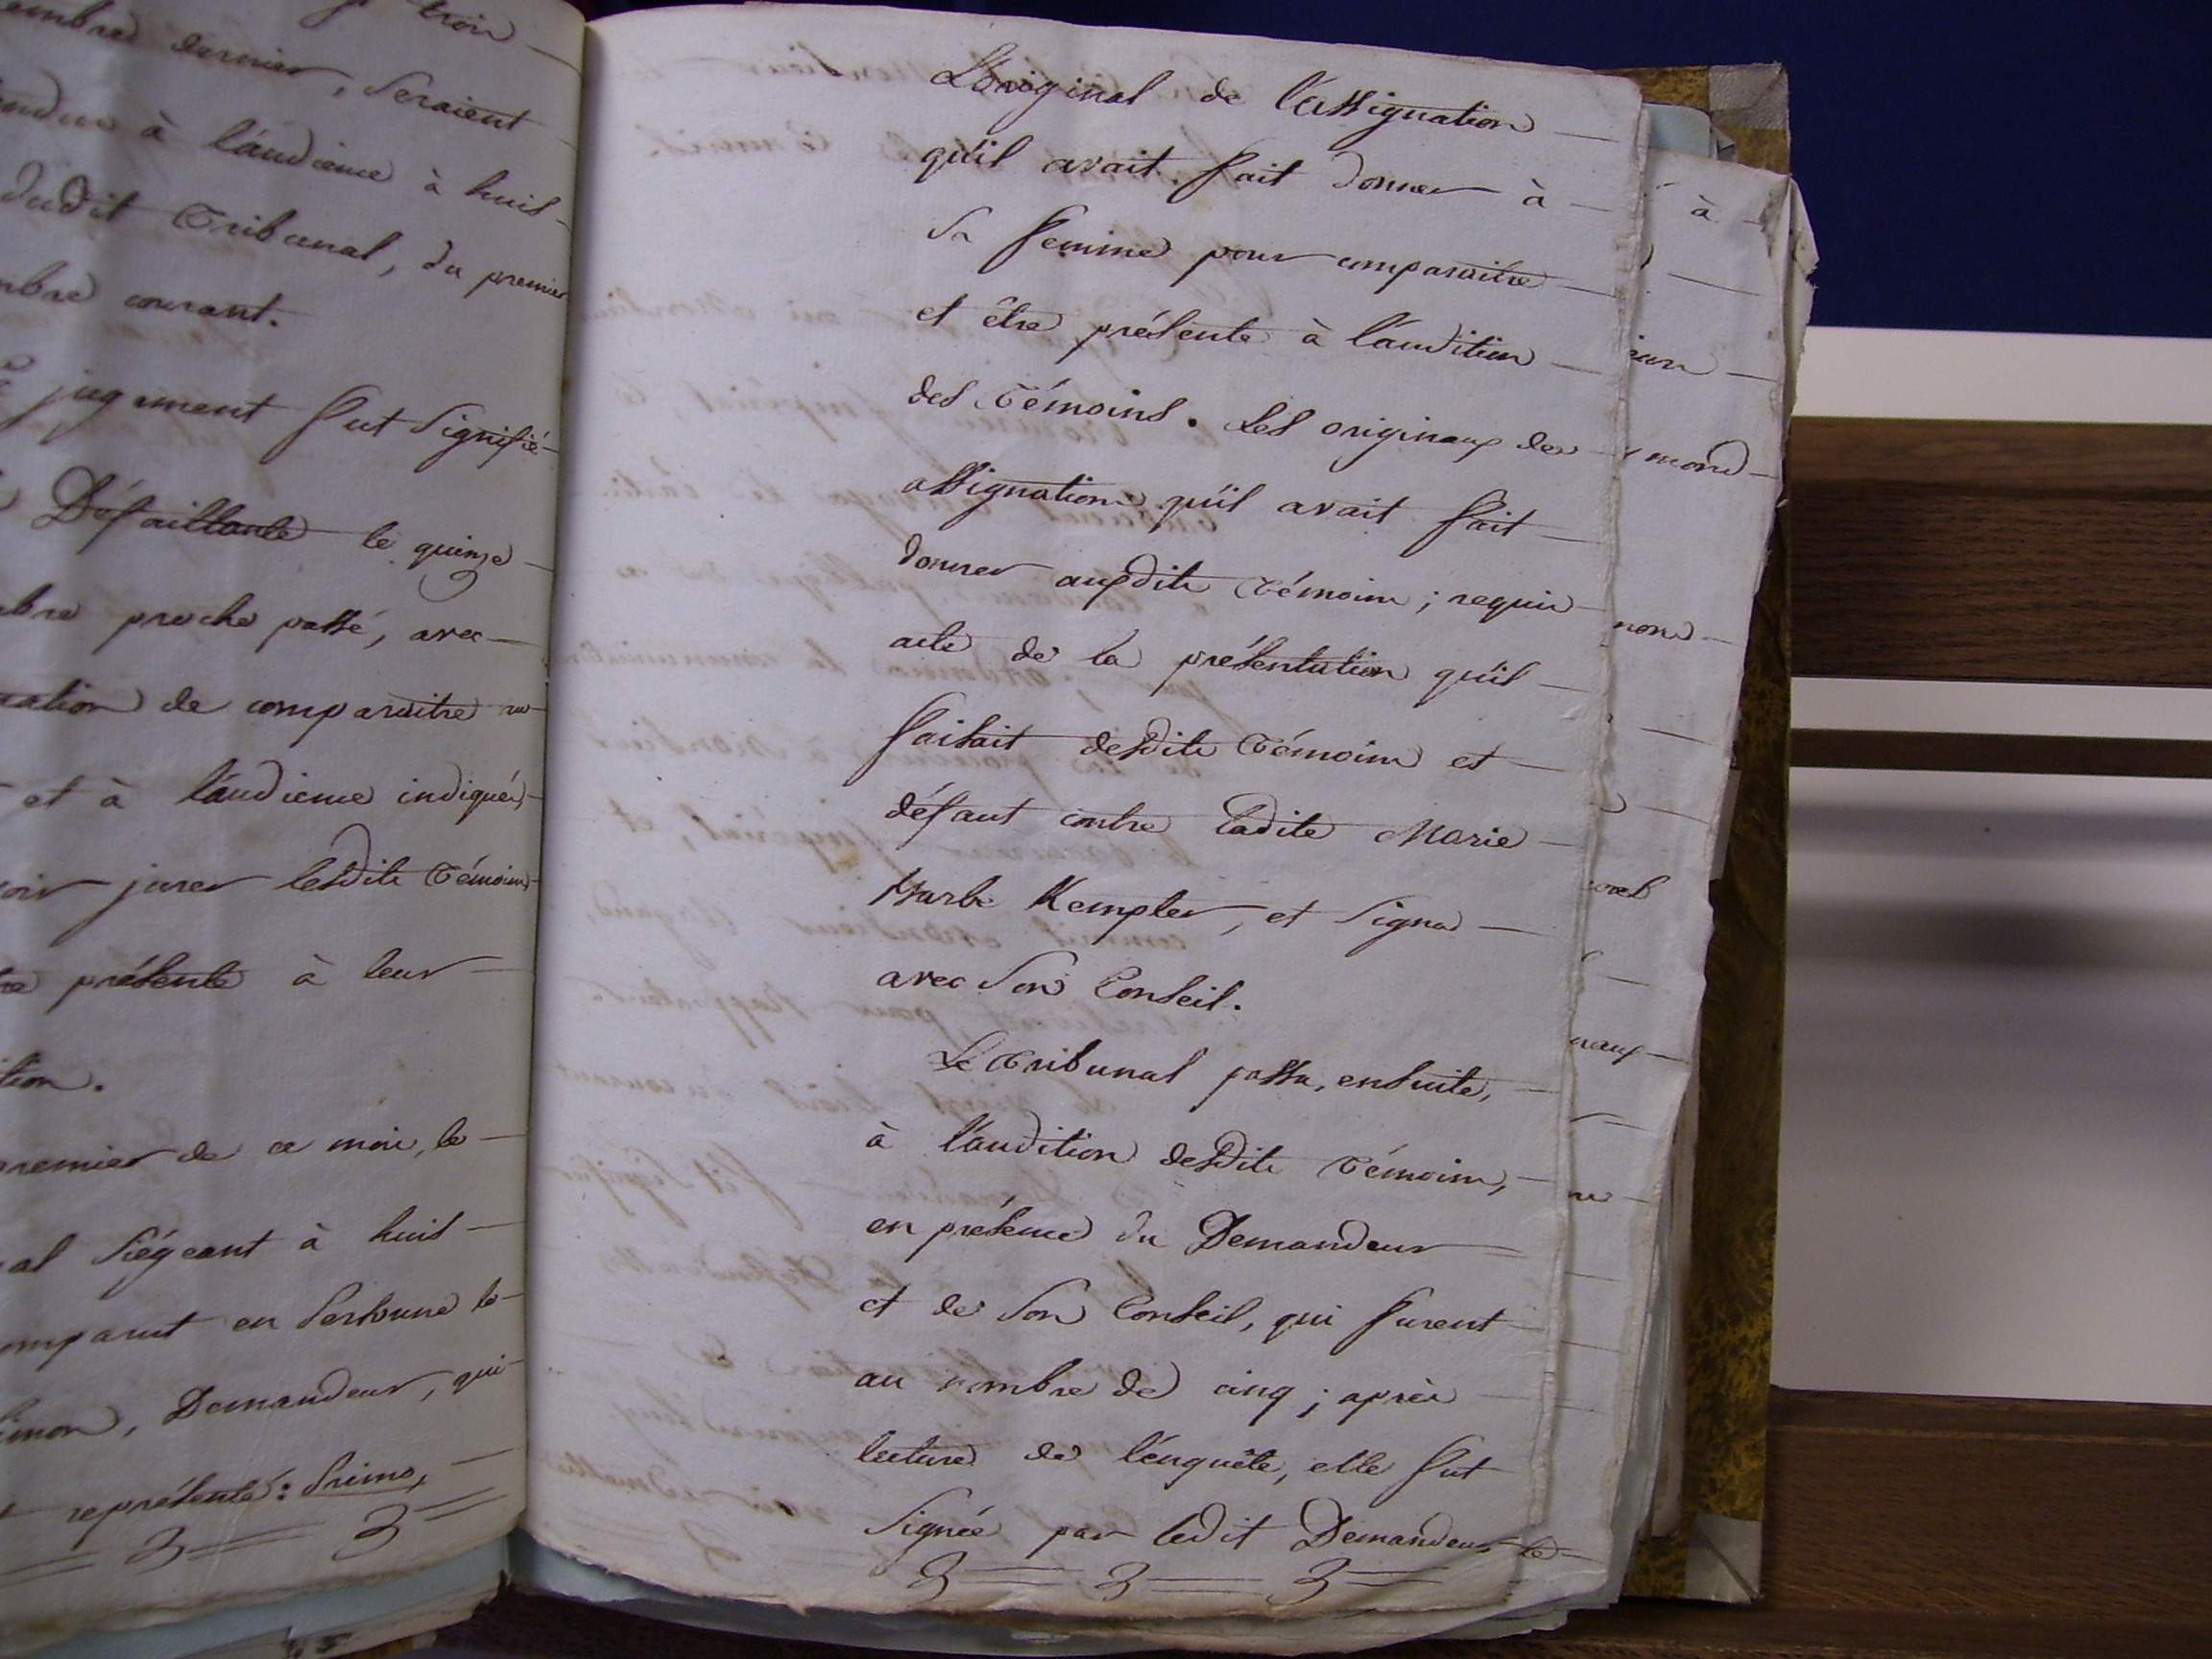 trois
embre dernier, seraient
endus à l'audience à huis
dudit Tribunal, du premier
mbre courant.
jugement fut signifié
Défaillante le quinze
bre proche passé, avec
nation de comparaitre au
et à l'audience indiqués,
oir jurer lesdits Témoins
re présente à leur
tion.
premier de ce mois, le
al Siégeant à huis
omparut en Personne le
Simon, Demandeur, qui
représenté: Primo,
L'original de l'assignation
qu'il avait fait donner à
sa femme pour comparaitre
et être présente à l'audition
des Témoins. Les originaux des
assignations qu'il avait fait
donner auxdits Témoins; requis
acte de la présentation qu'il
faisait desdits Témoins et
défaut contre ladite Marie
Barbe Kempler, et signa
avec son Conseil.
Le Tribunal passa, ensuite,
à l'audition desdits Témoins,
en présence du Demandeur
et de son Conseil, qui furent
au nombre de cinq; après
lecture de l'enquête, elle fut
signée par ledit Demandeur